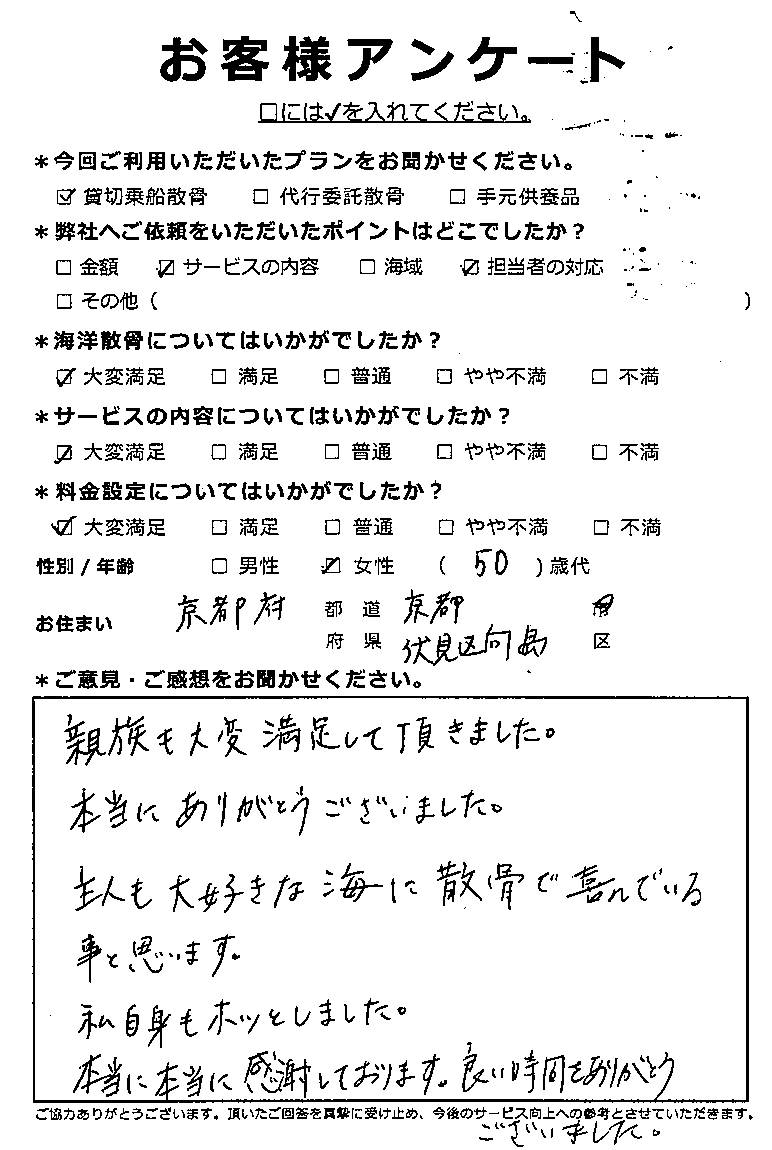 お客様アンケート
□には✓を入れてください。
＊今回ご利用いただいたプランをお聞かせください。
☑ 貸切乗船散骨 □ 代行委託散骨 □ 手元供養品
＊弊社へご依頼をいただいたポイントはどこでしたか？
□ 金額 ☑ サービスの内容 □ 海域 ☑ 担当者の対応
□ その他（ ）
＊海洋散骨についてはいかがでしたか？
☑ 大変満足 □ 満足 □ 普通 □ やや不満 □ 不満
＊サービスの内容についてはいかがでしたか？
☑ 大変満足 □ 満足 □ 普通 □ やや不満 □ 不満
＊料金設定についてはいかがでしたか？
☑ 大変満足 □ 満足 □ 普通 □ やや不満 □ 不満
性別 / 年齢 □ 男性 ☑ 女性 （ 50 ）歳代
お住まい 京都府 都 道 京都 市
府 県 伏見区向島 区
＊ご意見・ご感想をお聞かせください。
親族も大変満足して頂きました。
本当にありがとうございました。
主人も大好きな海に散骨で喜んでいる
事と思います。
私自身もホッとしました。
本当に本当に感謝しております。良い時間をありがとう
ご協力ありがとうございます。頂いたご回答を真摯に受け止め、今後のサービス向上への参考とさせていただきます。
ございました。